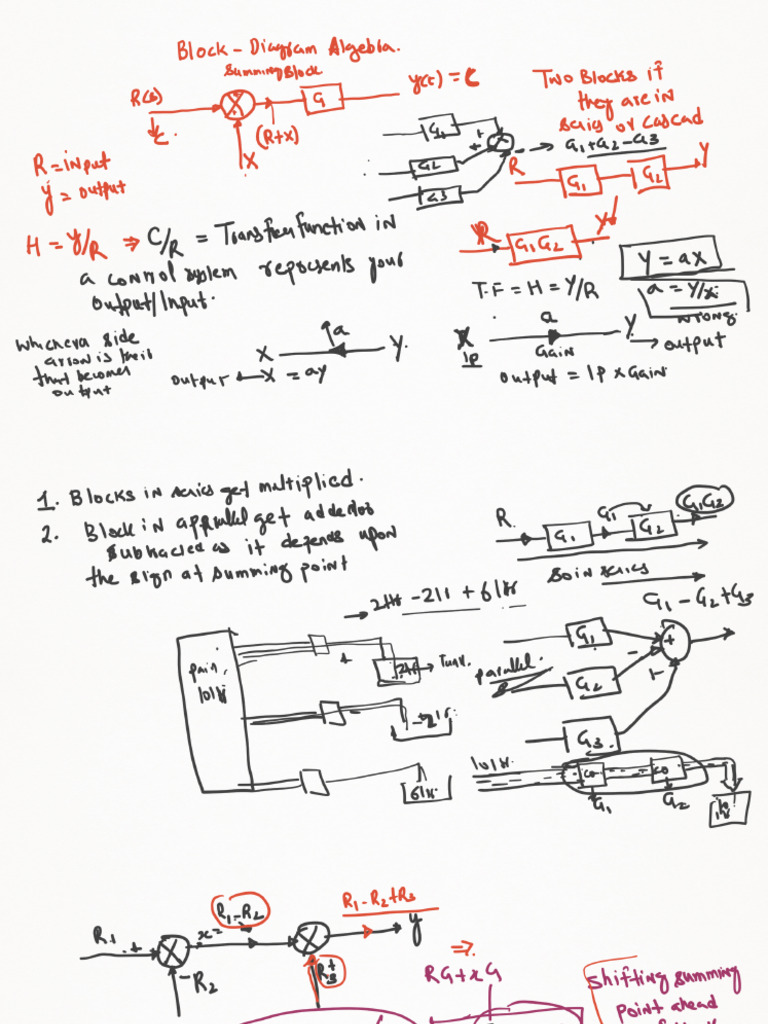 Block - Diagram Algebra.
Summing Block
R(s)
G
y(t) = C
C.
(R+X)
X
R = input
y = output
H = Y/R ⇒ C/R = Transfer function in
a control system represents your
Output/Input.
Two Blocks if
they are in
series or cascad
G1
G2
G3
+
+
-
G1+G2-G3
R
G1
G2
Y
R
G1G2
Y
T.F = H = Y/R
Y = ax
a = Y/x
wrong
X
IP
a
Gain
Y
output
output = IP x Gain
Whichever side
arrow is their
that becomes
output
X
a
Y.
output
X = ay
1. Blocks in series get multiplied.
2. Block in apprallel get added or
Subtracted as it depends upon
the sign at summing point
R
G1
G1
G2
G1G2
So in series
-2lt + 6ltr
G1 - G2 + G3
G1
G2
G3
+
-
+
parallel.
10ltr
6ltr
10ltr
G1
G2
R1
+
x=
R1-R2
-R2
R3
+
R1-R2+R3
y
⇒
RG+xG
Shifting summing
point ahead